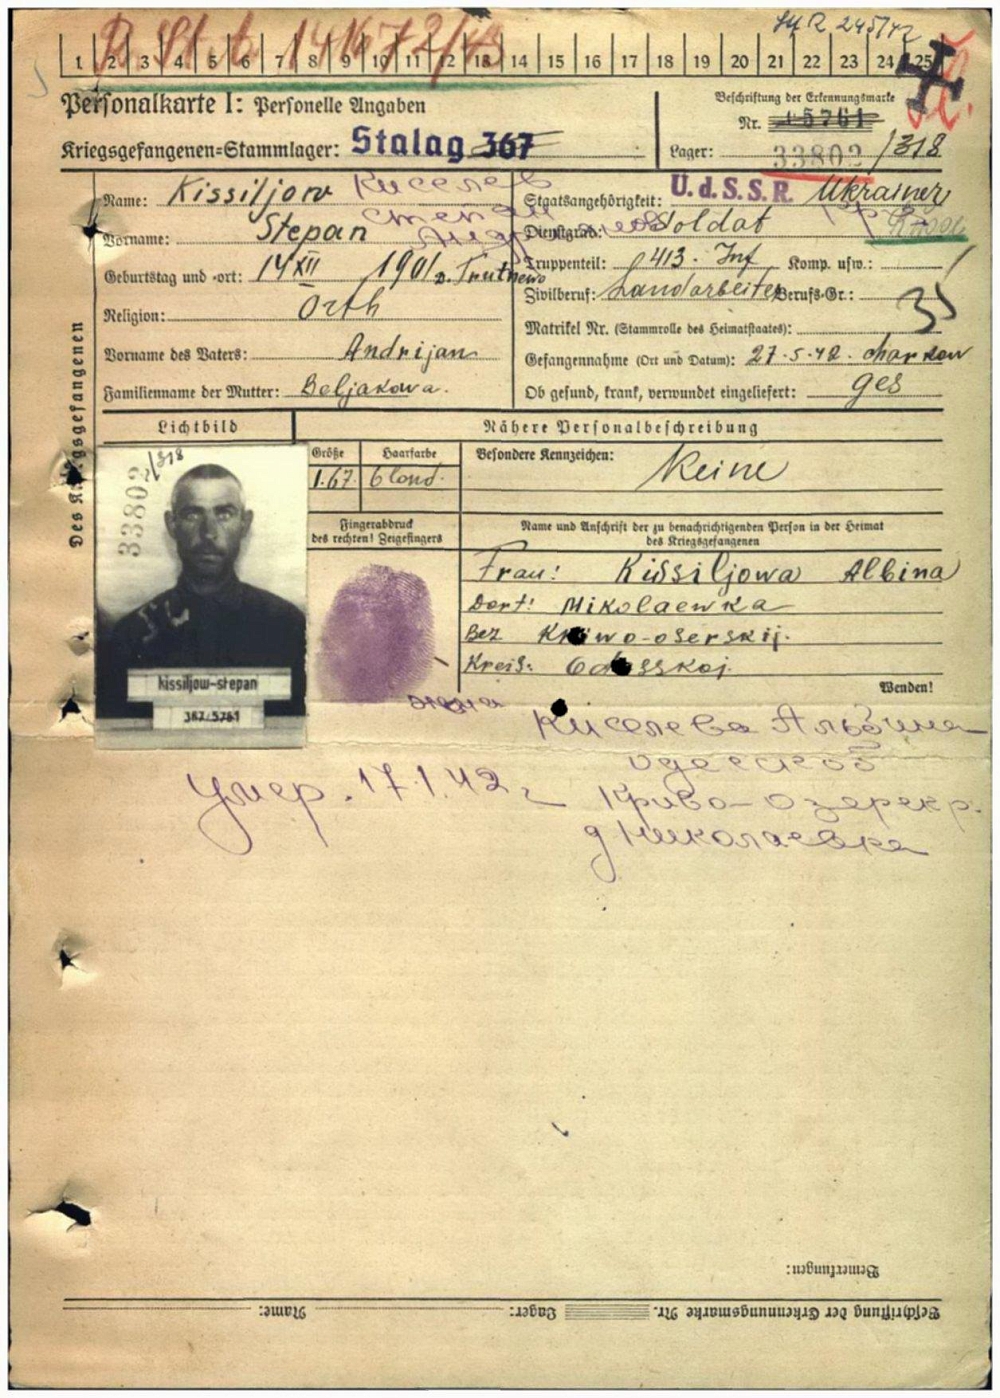 R. St. b. 141672/43
Sy R 245/42
1 2 3 4 5 6 7 8 9 10 11 12 13 14 15 16 17 18 19 20 21 22 23 24 25
Personalkarte I: Personelle Angaben
Beschriftung der Erkennungsmarke
Nr. 5761
Kriegsgefangenen-Stammlager: Stalag 367
Lager: 33802 /318
Des Kriegsgefangenen
Name: Kissiljow Киселев
Staatsangehörigkeit: U.d.S.S.R. Ukrainer
Vorname: Stepan Степан
Dienstgrad: Soldat
Geburtstag und -ort: 14 XII 1901
Truppenteil: 413. Inf Komp. usw.:
Zivilberuf: Landarbeiter Berufs-Gr.: 35
Religion: Orth
Matrikel Nr. (Stammrolle des Heimatstaates):
Vorname des Vaters: Andrijan
Gefangennahme (Ort und Datum): 27.5.42. Charkow
Familienname der Mutter: Beljakowa.
Ob gesund, krank, verwundet eingeliefert: ges
Lichtbild
Nähere Personalbeschreibung
Größe
Haarfarbe
Besondere Kennzeichen: Keine
1.67. blond.
33802 /318
Fingerabdruck
des rechten! Zeigefingers
Name und Anschrift der zu benachrichtigenden Person in der Heimat
des Kriegsgefangenen
Frau: Kissiljowa Albina
Dorf: Mikolaewka
Bez Kriwo-oserskij.
Kreis: Odesskoj.
kissiljow-stepan
367/5761
Wenden!
Киселева Альбина
Одесской
умер. 17.1.42 г
Криво-Озерск р.
д Николаевка
Bemerkungen:
Beschriftung der Erkennungsmarke Nr. Lager: Name: